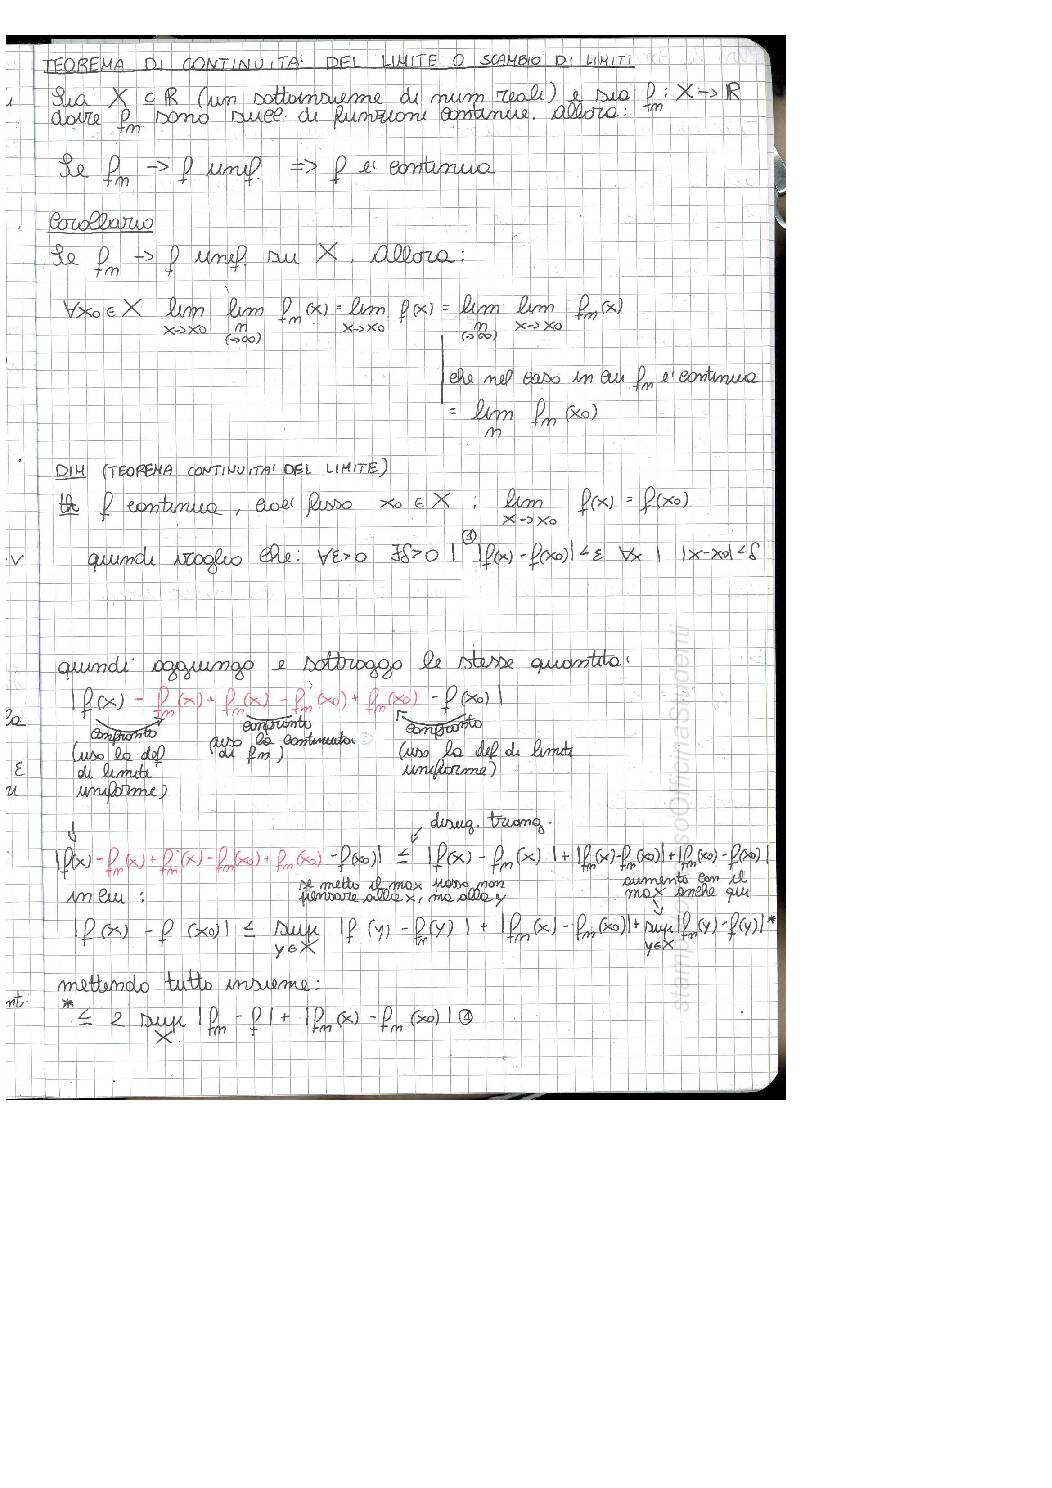 TEOREMA DI CONTINUITA' DEL LIMITE O SCAMBIO DI LIMITI
Sia X ⊂ R (un sottoinsieme di num reali) e sia fn : X → R
dove fn sono succ. di funzioni continue. allora:
Se fn → f unif. => f e' continua
Corollario
Se fn → f unif. su X. allora:
∀x0 ∈ X lim x→x0 lim n (→∞) fn(x) = lim x→x0 f(x) = lim n (→∞) lim x→x0 fn(x)
che nel caso in cui fn e' continua
= lim n fn(x0)
DIM (TEOREMA CONTINUITA' DEL LIMITE)
th f continua, cioe' fisso x0 ∈ X : lim x→x0 f(x) = f(x0)
quindi voglio che: ∀ε>0 ∃δ>0 | |f(x) - f(x0)| < ε ∀x | |x-x0| < δ
quindi aggiungo e sottraggo le stesse quantita'
|f(x) - fn(x) + fn(x) - fn(x0) + fn(x0) - f(x0)|
confronto confronto confronto
(uso la def di limite uniforme) (uso la continuita' di fn) (uso la def di limite uniforme)
disug. triang.
|f(x) - fn(x) + fn(x) - fn(x0) + fn(x0) - f(x0)| ≤ |f(x) - fn(x)| + |fn(x) - fn(x0)| + |fn(x0) - f(x0)|
in cui :
se metto il max posso non pensare alla x, ma alla y
aumento con il max anche qui
|f(x) - f(x0)| ≤ sup y∈X |f(y) - fn(y)| + |fn(x) - fn(x0)| + sup y∈X |fn(y) - f(y)| *
mettendo tutto insieme:
* ≤ 2 sup X |fn - f| + |fn(x) - fn(x0)|